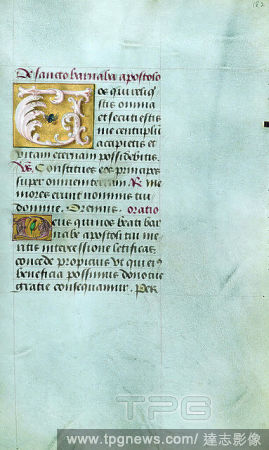 182
De sancto barnaba apostolo
Vos qui reliqui
stis omnia
et secuti estis
me centuplu
accipietis et
vitam eternam possidebitis.
Vs. Constitues eos principes
super omnem terram. R. me
mores erunt nominis tui
domine. Oremus. oratio
Deus qui nos beati bar
nabe apostoli tui me
ritis et intercessione letificas:
concede propicius vt qui eius
beneficia poscimus dono tue
gratie consequamur. Per.
TPG
www.tpgnews.com / 達志影像